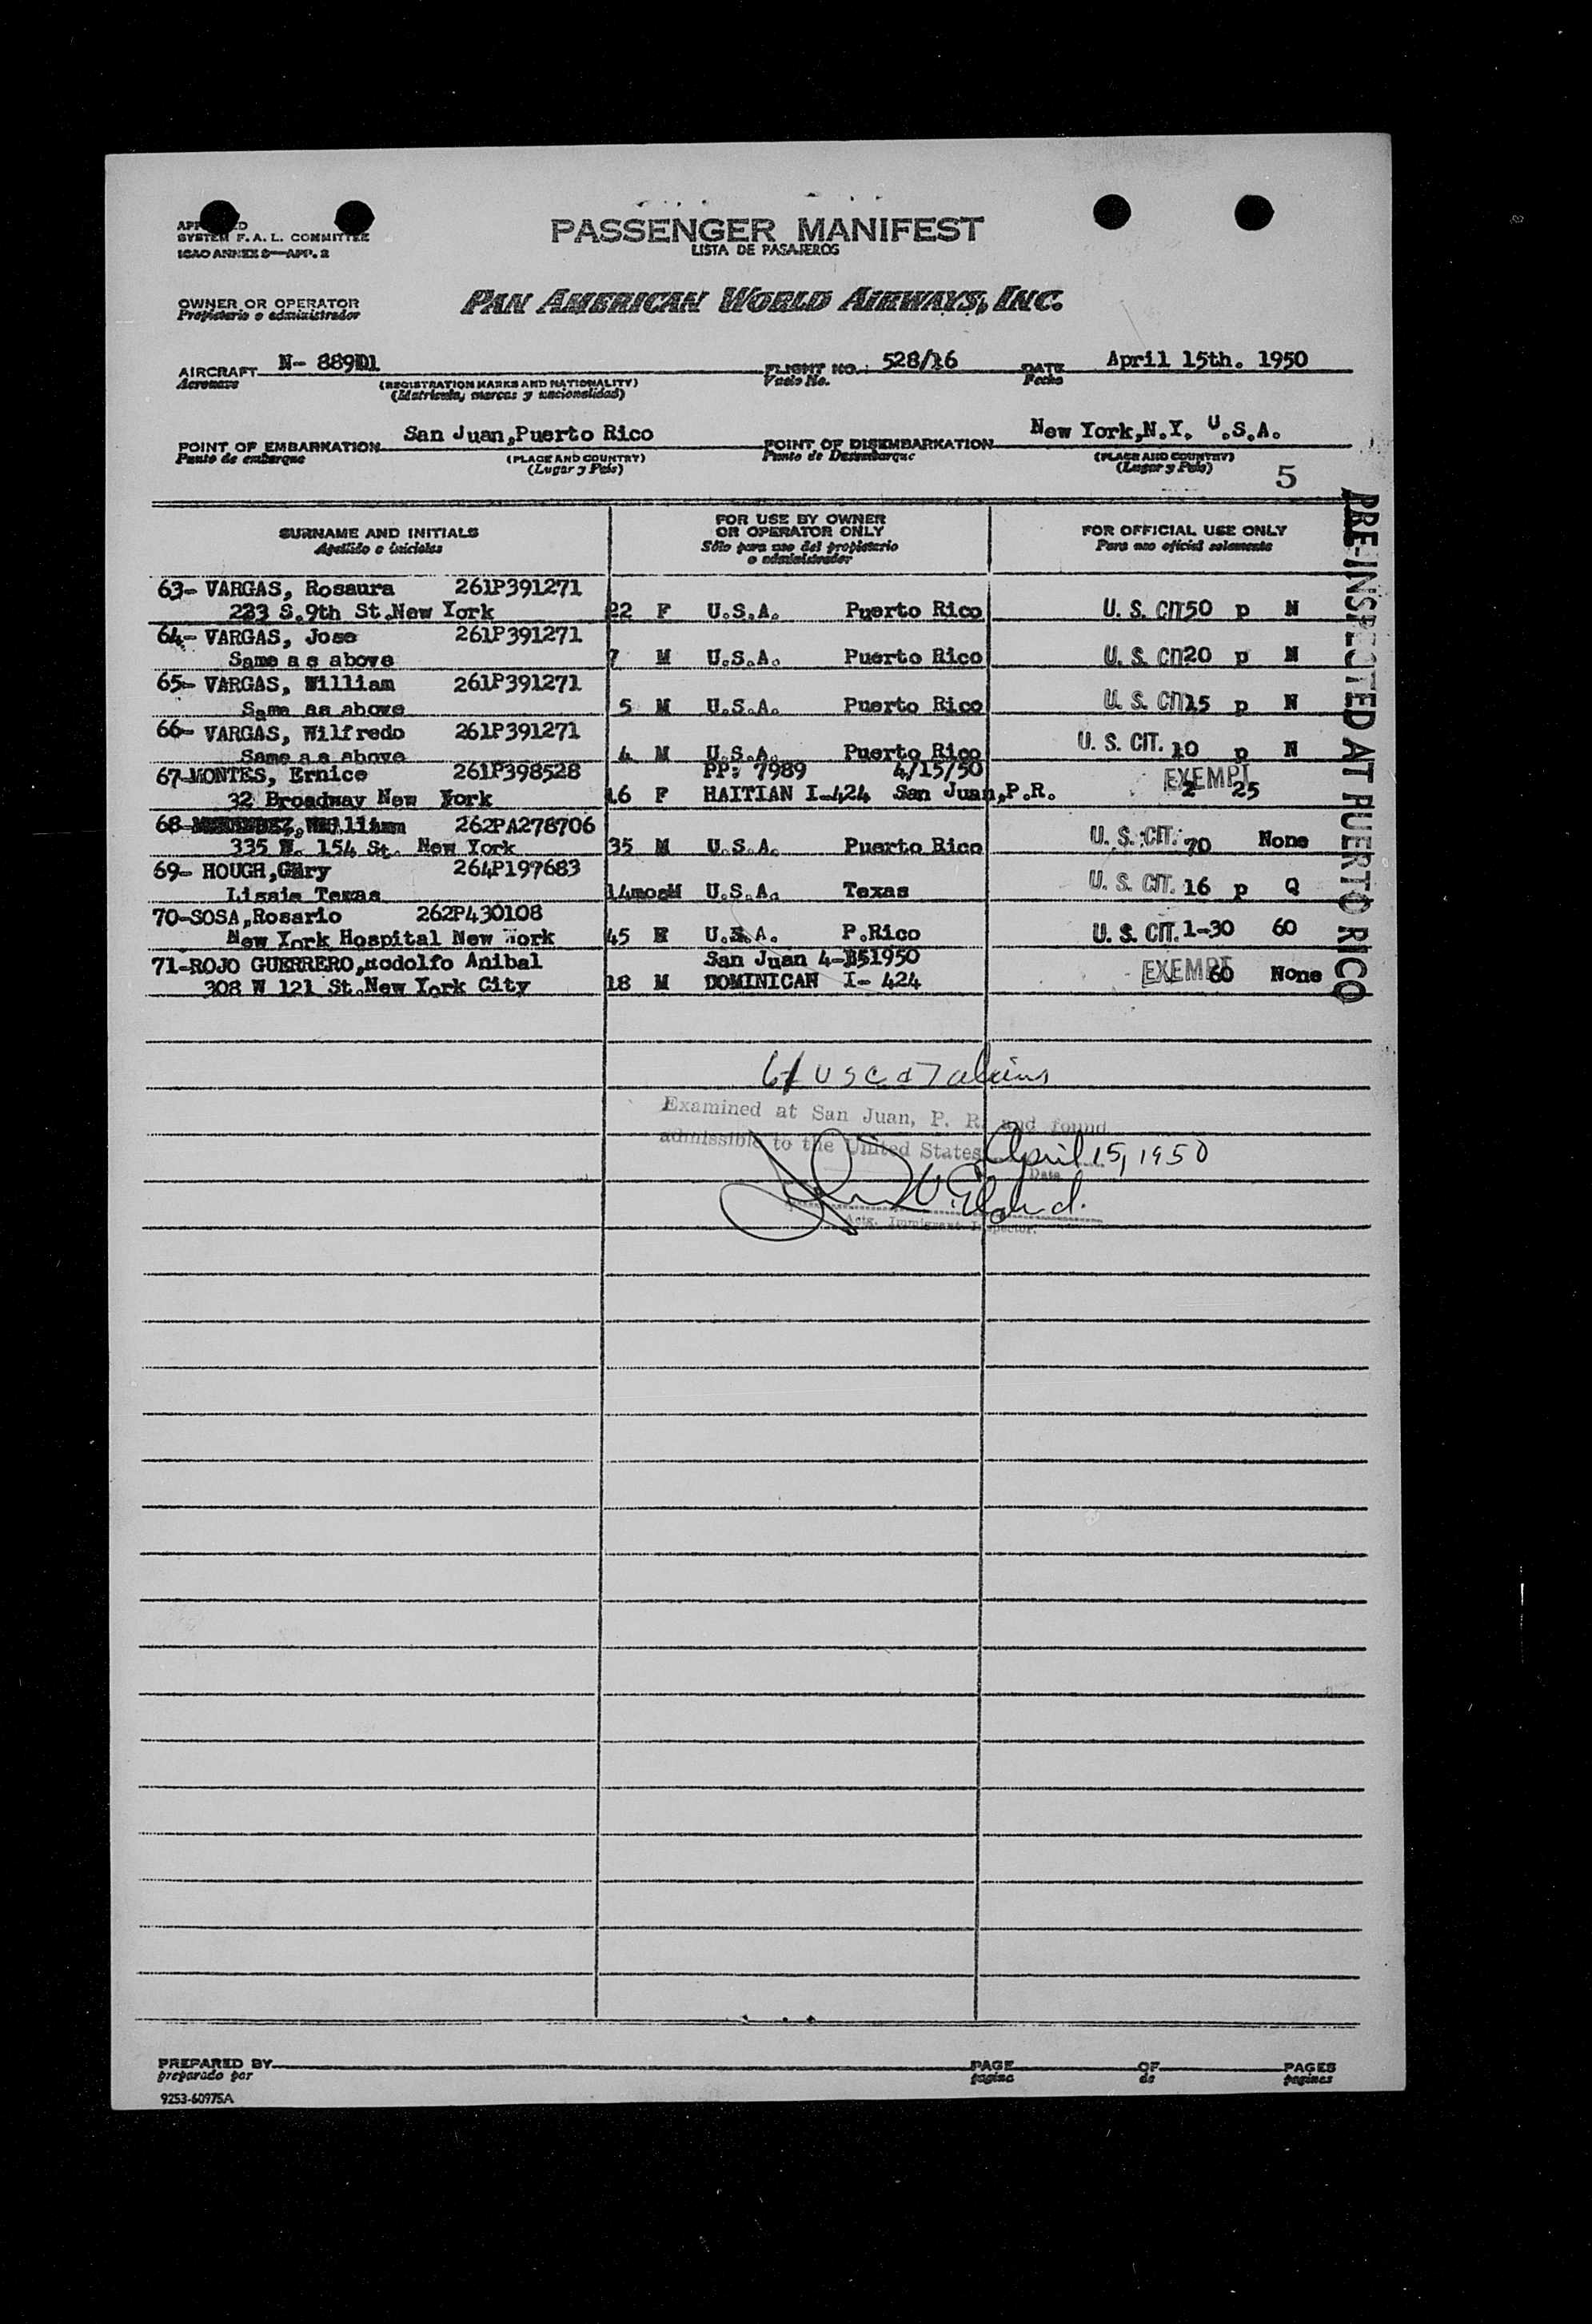 SYSTEM F. A. L. COMMITTEE
ICAO ANNEX 9—APP. 2
PASSENGER MANIFEST
LISTA DE PASAJEROS
OWNER OR OPERATOR
Propietario o administrador
PAN AMERICAN WORLD AIRWAYS, INC.
AIRCRAFT N- 88901 FLIGHT NO. 528/16 DATE April 15th. 1950
Aeronave (REGISTRATION MARKS AND NATIONALITY) Vuelo No. Fecha
(Matricula, marcas y nacionalidad)
POINT OF EMBARKATION San Juan,Puerto Rico POINT OF DISEMBARKATION New York,N.Y. U.S.A.
Punto de embarque (PLACE AND COUNTRY) Punto de Desembarque (PLACE AND COUNTRY)
(Lugar y País) (Lugar y País)
5
PRE-INSPECTED AT PUERTO RICO
SURNAME AND INITIALS FOR USE BY OWNER OR OPERATOR ONLY FOR OFFICIAL USE ONLY
Apellido e iniciales Sólo para uso del propietario o administrador Para uso oficial solamente
63- VARGAS, Rosaura 261P391271
223 S.9th St.New York 22 F U.S.A. Puerto Rico U. S. CIT 50 p N
64- VARGAS, Jose 261P391271
Same as above 7 M U.S.A. Puerto Rico U. S. CIT 20 p N
65- VARGAS, William 261P391271
Same as above 5 M U.S.A. Puerto Rico U. S. CIT 15 p N
66- VARGAS, Wilfredo 261P391271
Same as above 4 M U.S.A. Puerto Rico U. S. CIT. 10 p N
67-MONTES, Ernice 261P398528 PP: 7989 4/15/50
32 Broadway New York 16 F HAITIAN I-424 San Juan,P.R. EXEMPT 2 25
68- William 262PA278706
335 W. 154 St. New York 35 M U.S.A. Puerto Rico U. S. CIT. 70 None
69- HOUGH,Gary 264P197683
Lissie Texas 14mosM U.S.A. Texas U. S. CIT. 16 p Q
70-SOSA,Rosario 262P430108
New York Hospital New York 45 U.S.A. P.Rico U. S. CIT. 1-30 60
71-ROJO GUERRERO,Rodolfo Anibal San Juan 4-151950
308 W 121 St.New York City 18 M DOMINICAN I- 424 EXEMPT 60 None
Examined at San Juan, P. R. and found
admissible to the United States April 15, 1950
Date
Actg. Immigrant Inspector.
PREPARED BY PAGE OF PAGES
preparado por pagina de paginas
9253-60975A